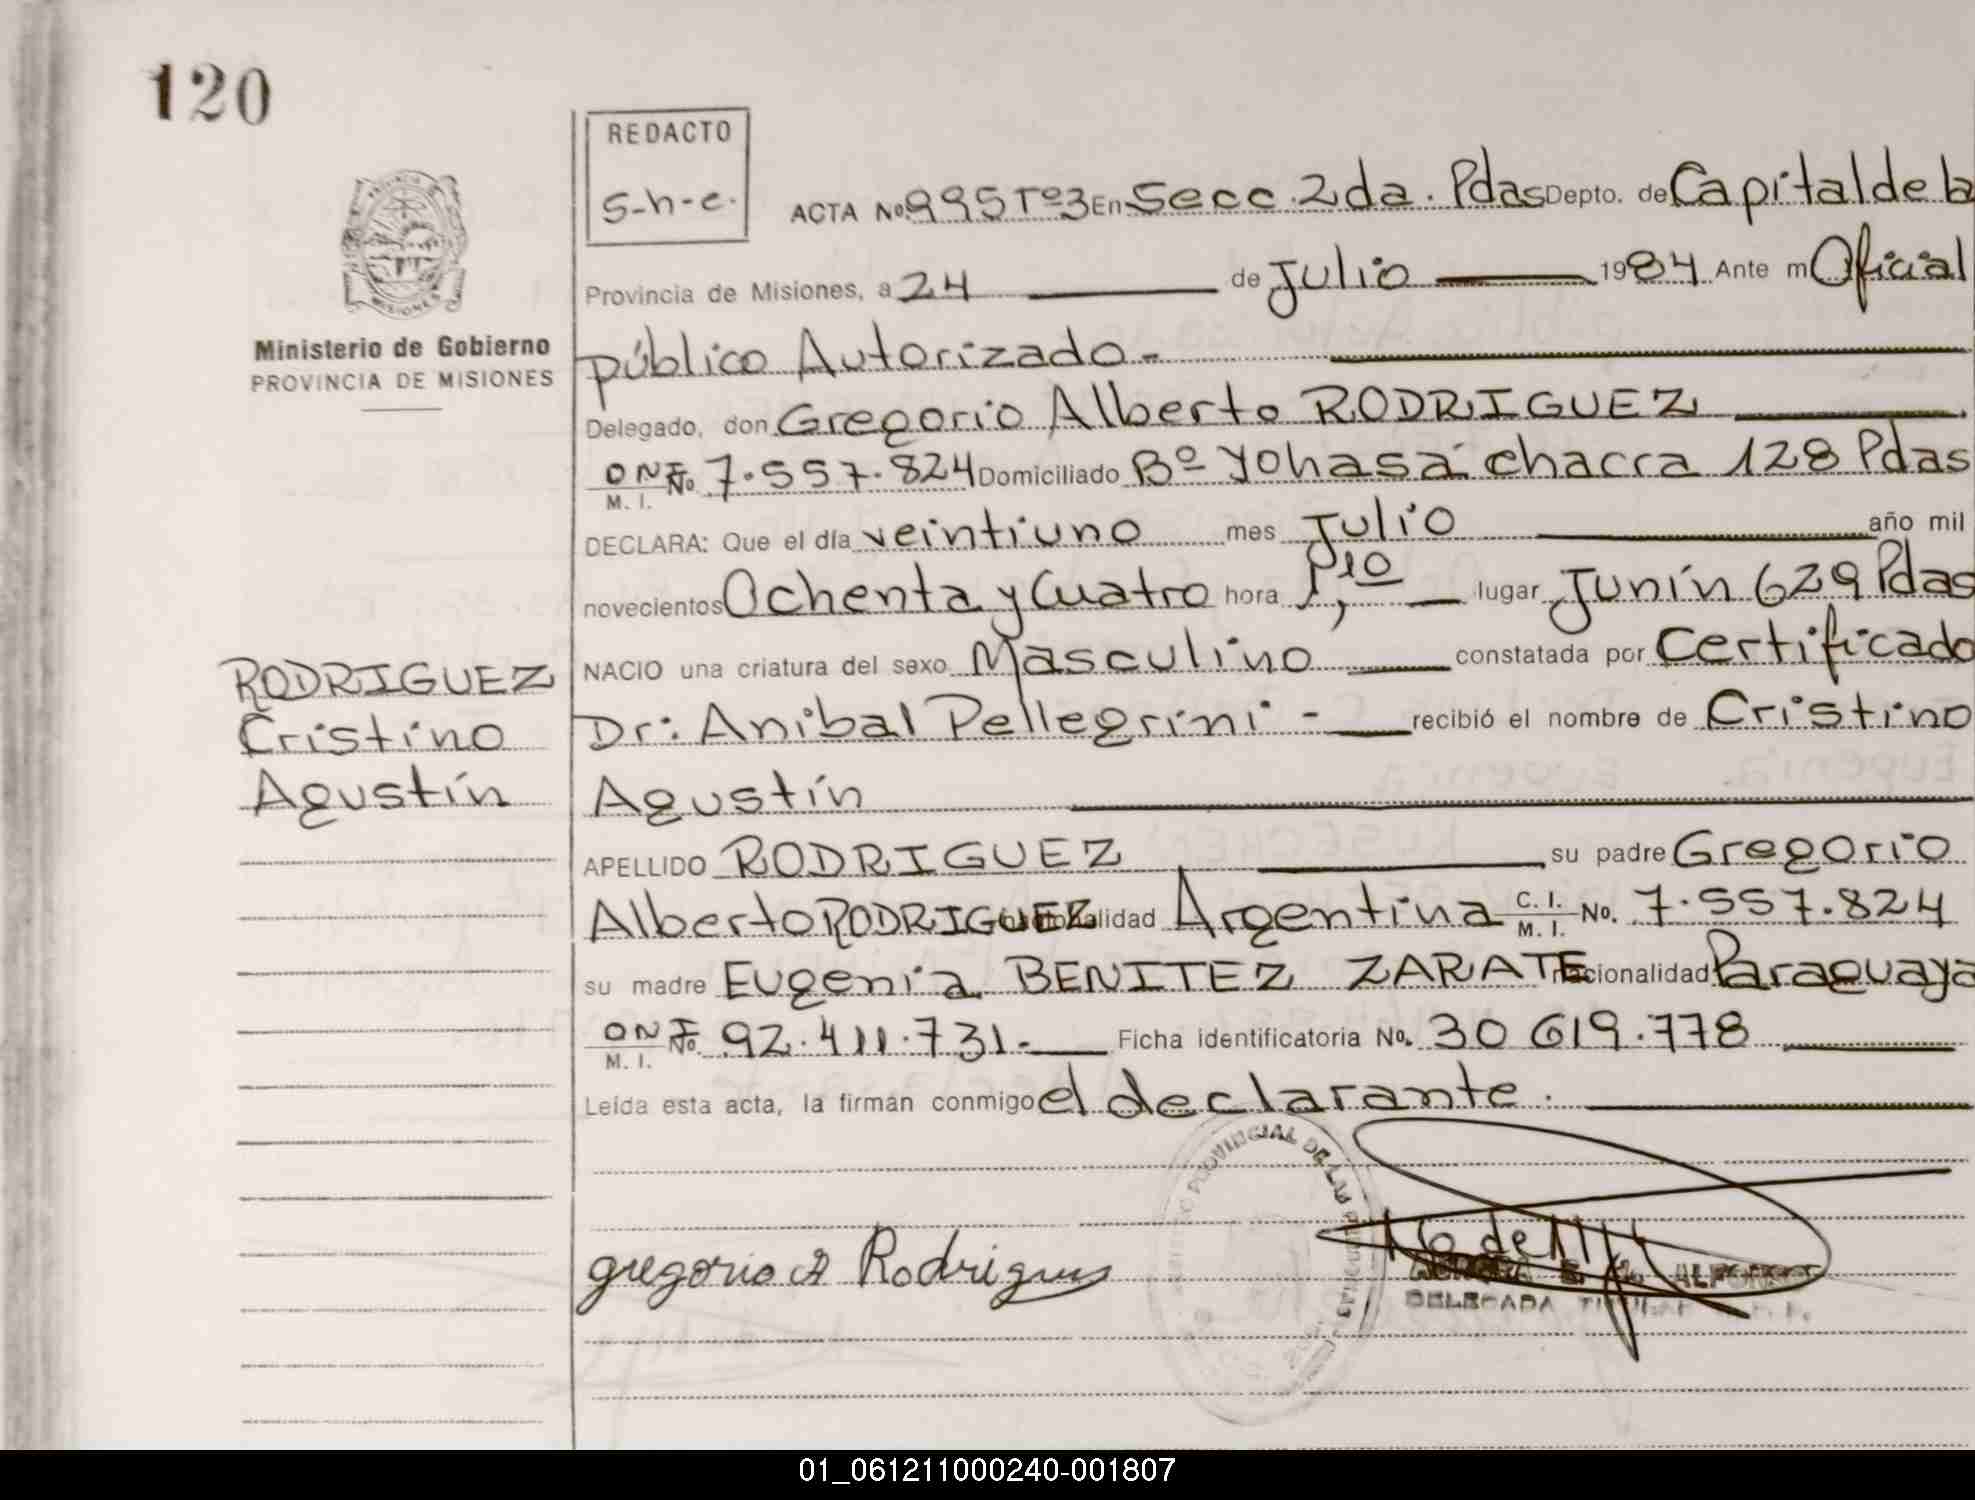 120
REDACTO
S-h-e.
ACTA No 995 Tº3 En Secc. 2da. Pdas Depto. de Capital de la
Provincia de Misiones, a 24 de Julio 1984 Ante m Oficial
Ministerio de Gobierno
PROVINCIA DE MISIONES
público Autorizado -
Delegado, don Gregorio Alberto RODRIGUEZ
DNI No. 7.557.824 Domiciliado Bº Yohasá chacra 128 Pdas
M. I.
DECLARA: Que el día veintiuno mes Julio año mil
novecientos Ochenta y Cuatro hora 1,10 lugar Junín 629 Pdas
NACIO una criatura del sexo Masculino constatada por Certificado
Dr: Anibal Pellegrini - recibió el nombre de Cristino
Agustín
RODRIGUEZ
Cristino
Agustín
APELLIDO RODRIGUEZ su padre Gregorio
Alberto RODRIGUEZ nacionalidad Argentina C. I. M. I. No. 7.557.824
su madre Eugenia BENITEZ ZARATE nacionalidad Paraguaya
DNI No. 92.411.731.- Ficha identificatoria No. 30 619.778
M. I.
Leída esta acta, la firman conmigo el declarante.
PROVINCIAL DE LAS
gregorio A Rodrigues
ALFONSO
DELEGADA TITULAR
01_061211000240-001807